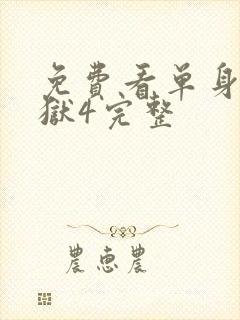 免費看单身
獄4完整
農惠農